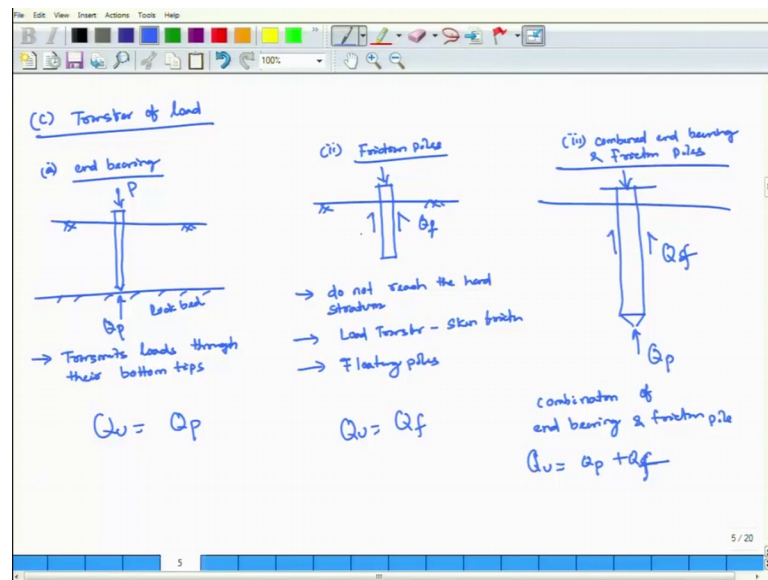 File Edit View Insert Actions Tools Help
B I
100%
(C) Transfer of load
(i) end bearing
P
Rock bed
Qp
→ Transmits loads through
their bottom tips
Qu = Qp
(ii) Friction piles
Qf
→ do not reach the hard
stratum
→ Load Transfer - Skin friction
→ Floating piles
Qu = Qf
(iii) combined end bearing
& Friction piles
Qf
Qp
combination of
end bearing & friction pile
Qu = Qp + Qf
5 / 20
5